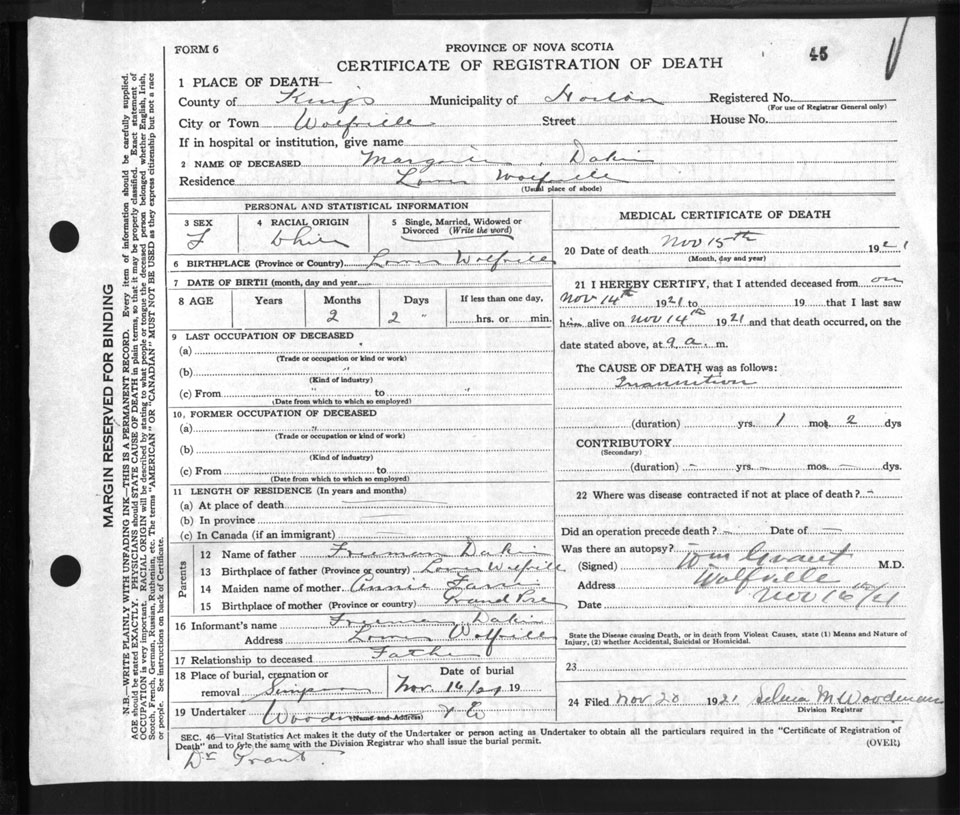 FORM 6
PROVINCE OF NOVA SCOTIA
45
CERTIFICATE OF REGISTRATION OF DEATH
1 PLACE OF DEATH—
County of Kings Municipality of Horton Registered No.
(For use of Registrar General only)
City or Town Wolfville Street House No.
If in hospital or institution, give name
2 NAME OF DECEASED Margorie Dakin
Residence Lower Wolfville
(Usual place of abode)
PERSONAL AND STATISTICAL INFORMATION
3 SEX 4 RACIAL ORIGIN 5 Single, Married, Widowed or
Divorced (Write the word)
F White
6 BIRTHPLACE (Province or Country) Lower Wolfville
7 DATE OF BIRTH (month, day and year)
8 AGE Years Months Days If less than one day,
2 2 " hrs. or min.
9 LAST OCCUPATION OF DECEASED
(a)
(Trade or occupation or kind or work)
(b) "
(Kind of industry)
(c) From " to "
(Date from which to which so employed)
10 FORMER OCCUPATION OF DECEASED
(a) "
(Trade or occupation or kind of work)
(b)
(Kind of industry)
(c) From to
(Date from which to which so employed)
11 LENGTH OF RESIDENCE (In years and months)
(a) At place of death
(b) In province
(c) In Canada (if an immigrant)
Parents
12 Name of father Freeman Dakin
13 Birthplace of father (Province or country) Lower Wolfville
14 Maiden name of mother Annie
15 Birthplace of mother (Province or country) Grand Pre
16 Informant's name Freeman Dakin
Address Lower Wolfville
17 Relationship to deceased Father
18 Place of burial, cremation or Date of burial
removal Simpson Nov 16/21 19
19 Undertaker Woodman & Co
(Name and Address)
MEDICAL CERTIFICATE OF DEATH
20 Date of death Nov 15th 1921
(Month, day and year)
21 I HEREBY CERTIFY, that I attended deceased from on
Nov 14th 1921 to 19 that I last saw
him alive on Nov 14th 1921 and that death occurred, on
the date stated above, at 9 a. m.
The CAUSE OF DEATH was as follows:
Inannition
(duration) yrs. 1 mos. 2 dys
CONTRIBUTORY
(Secondary)
(duration) – yrs. – mos. – dys.
22 Where was disease contracted if not at place of death? –
Did an operation precede death? – Date of –
Was there an autopsy?
(Signed) Wm Grant M.D.
Address Wolfville
Date Nov 16th/21
State the Disease causing Death, or in death from Violent Causes, state (1) Means and Nature of
Injury, (2) whether Accidental, Suicidal or Homicidal.
23
24 Filed Nov 20 1921 Selma M Woodman
Division Registrar
SEC. 46—Vital Statistics Act makes it the duty of the Undertaker or person acting as Undertaker to obtain all the particulars required in the "Certificate of Registration of
Death" and to fyle the same with the Division Registrar who shall issue the burial permit.
(OVER)
Dr Grant
MARGIN RESERVED FOR BINDING
N.B.—WRITE PLAINLY WITH UNFADING INK—THIS IS A PERMANENT RECORD. Every item of information should be carefully supplied.
AGE should be stated EXACTLY. PHYSICIANS should STATE CAUSE OF DEATH in plain terms, so that it may be properly classified. Exact statement of
OCCUPATION is very important. RACIAL ORIGIN will be described by stating to what people or tongue the deceased person belonged whether English, Irish,
Scotch, French, German, Russian, Ruthenian, etc. The terms "AMERICAN" OR "CANADIAN" MUST NOT BE USED as they express citizenship but not a race
or people. See instructions on back of Certificate.